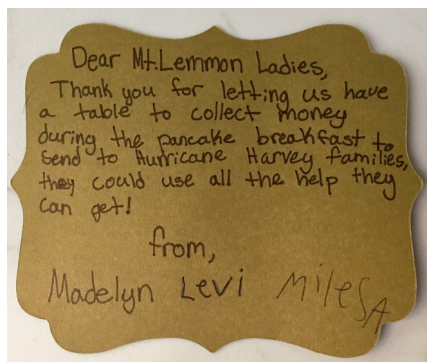 Dear Mt. Lemmon Ladies,
Thank you for letting us have
a table to collect money
during the pancake breakfast to
send to Hurricane Harvey families,
they could use all the help they
can get!
from,
Madelyn Levi Miles A